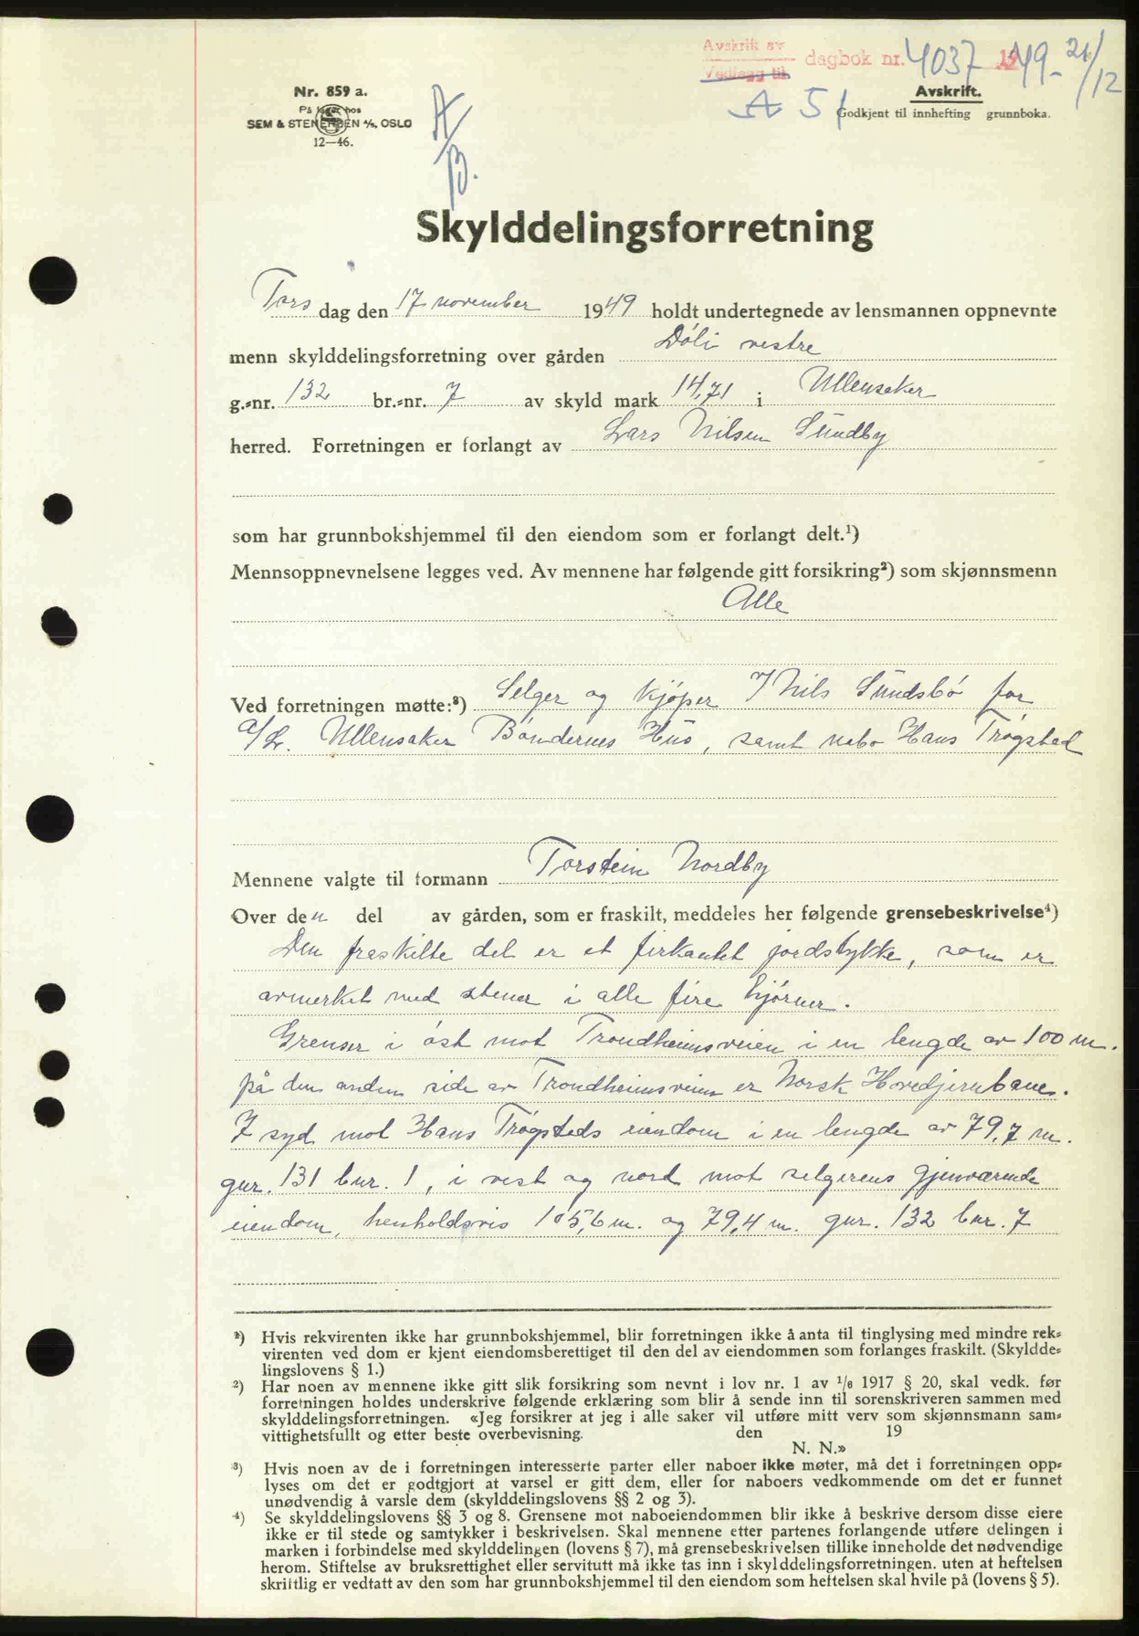 Avskrik av
Vedlegg til
dagbok nr. 4037 1949 - 21/12
A 51
Nr. 859 a.
På lager hos
SEM & STENERSEN A/S, OSLO
12—46.
A/B.
Avskrift.
Godkjent til innhefting grunnboka.
Skylddelingsforretning
Tors dag den 17 november 1949 holdt undertegnede av lensmannen oppnevnte
menn skylddelingsforretning over gården Døli vestre
g.-nr. 132 br.-nr. 7 av skyld mark 14,71 i Ullensaker
herred. Forretningen er forlangt av Lars Nilsen Sundby
som har grunnbokshjemmel til den eiendom som er forlangt delt.¹)
Mennsoppnevnelsene legges ved. Av mennene har følgende gitt forsikring²) som skjønnsmenn
Alle
Ved forretningen møtte:³) Selger og kjøper v/ Nils Sundsbö for
a/L. Ullensaker Bøndernes Hus, samt nabo Hans Trøgstad
Mennene valgte til formann Torstein Nordby
Over den del av gården, som er fraskilt, meddeles her følgende grensebeskrivelse⁴)
Den fraskilte del er et firkantet jordstykke, som er
avmerket med stener i alle fire hjørner.
Grenser i öst mot Trondheimsveien i en lengde av 100 m.
på den anden side av Trondheimsveien er Norsk Hovedjernbane.
I syd mot Hans Trøgsteds eiendom i en lengde av 79,7 m.
gnr. 131 bnr. 1, i vest og nord mot selgerens gjenværende
eiendom, henholdsvis 105,6 m. og 79,4 m. gnr. 132 bnr. 7
¹) Hvis rekvirenten ikke har grunnbokshjemmel, blir forretningen ikke å anta til tinglysing med mindre rek-
virenten ved dom er kjent eiendomsberettiget til den del av eiendommen som forlanges fraskilt. (Skyldde-
lingslovens § 1.)
²) Har noen av mennene ikke gitt slik forsikring som nevnt i lov nr. 1 av 1/6 1917 § 20, skal vedk. før
forretningen holdes underskrive følgende erklæring som blir å sende inn til sorenskriveren sammen med
skylddelingsforretningen. «Jeg forsikrer at jeg i alle saker vil utføre mitt verv som skjønnsmann sam-
vittighetsfullt og etter beste overbevisning. den 19
N. N.»
³) Hvis noen av de i forretningen interesserte parter eller naboer ikke møter, må det i forretningen opp-
lyses om det er godtgjort at varsel er gitt dem, eller for naboers vedkommende om det er funnet
unødvendig å varsle dem (skylddelingslovens §§ 2 og 3).
⁴) Se skylddelingslovens §§ 3 og 8. Grensene mot naboeiendommen blir ikke å beskrive dersom disse eiere
ikke er til stede og samtykker i beskrivelsen. Skal mennene etter partenes forlangende utføre delingen i
marken i forbindelse med skylddelingen (lovens § 7), må grensebeskrivelsen tillike inneholde det nødvendige
herom. Stiftelse av bruksrettighet eller servitutt må ikke tas inn i skylddelingsforretningen. uten at heftelsen
skriftlig er vedtatt av den som har grunnbokshjemmel til den eiendom som heftelsen skal hvile på (lovens § 5).